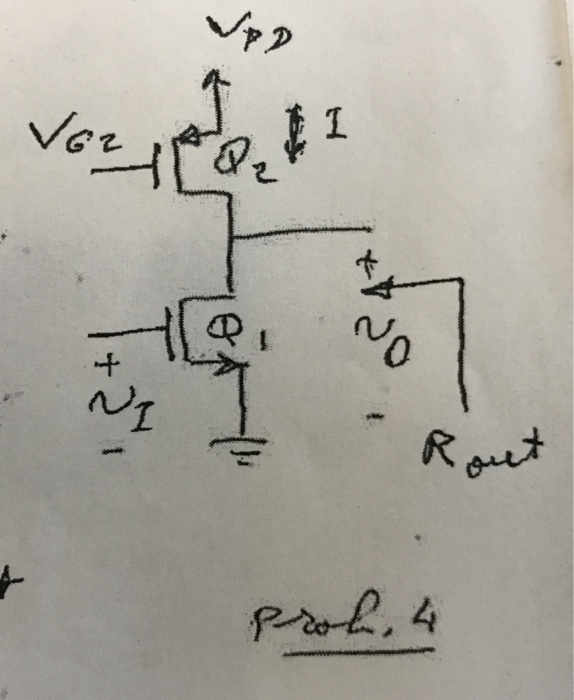 VDD
VG2
Q2
I
Q1
+
vI
-
+
vO
-
Rout
Prob. 4